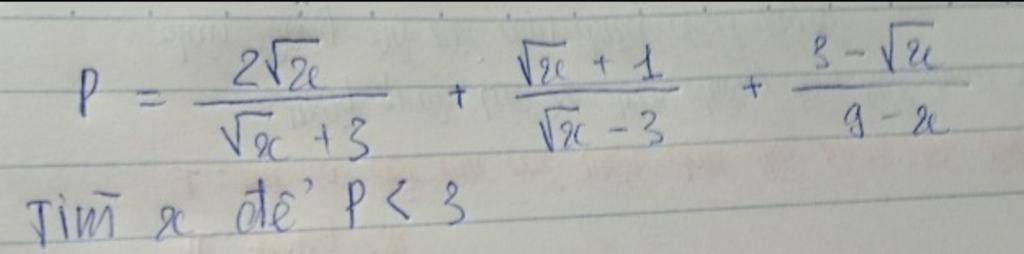 P = \frac{2\sqrt{x}}{\sqrt{x} + 3} + \frac{\sqrt{x} + 1}{\sqrt{x} - 3} + \frac{3 - \sqrt{x}}{9 - x}
Tìm x để P < 3